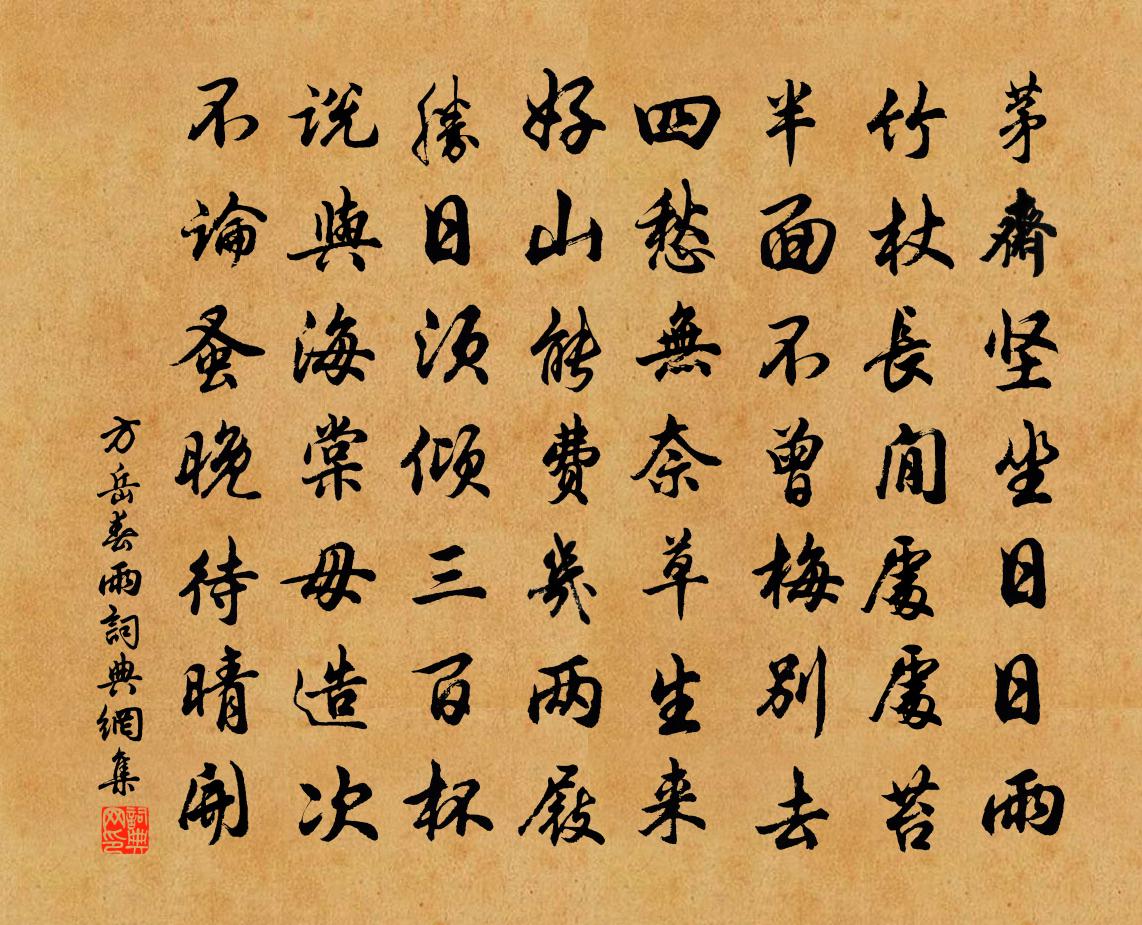 茅齋坚坐日日雨
竹杖長閒處處苔
半面不曾梅别去
四愁無奈草生来
好山能費幾兩屐
勝日須傾三百杯
説與海棠毋造次
不論蚤晚待晴開
方岳春雨詞典網集
詞典网印